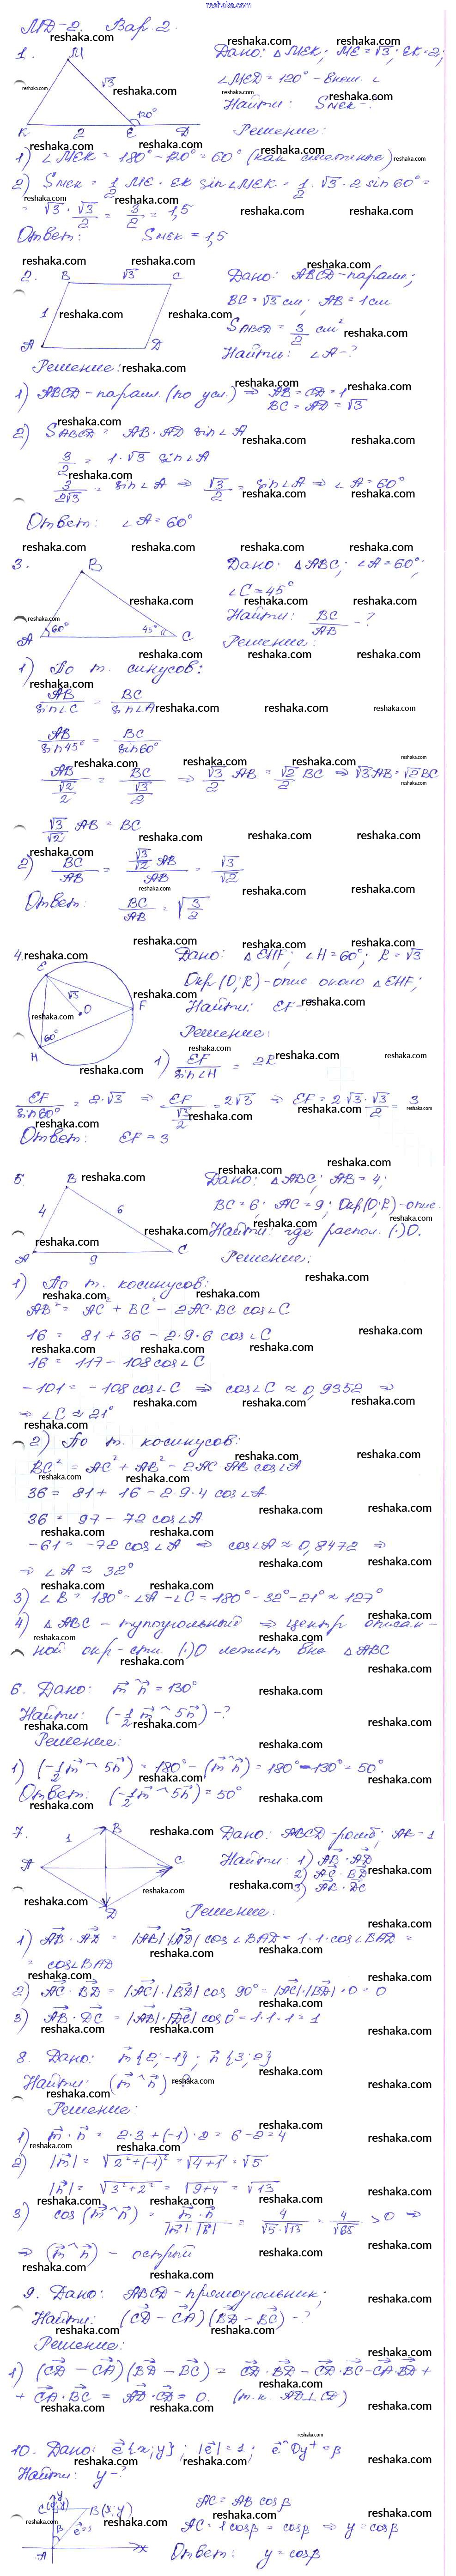 reshaka.com
МД-2. Вар. 2.
1. Дано: △MEK; ME = √3; EK = 2;
∠MED = 120° - внеш. ∠
Найти: S_MEK - ?
M √3 120° K 2 E D
Решение:
1) ∠MEK = 180° - 120° = 60° (как смежные)
2) S_MEK = 1/2 ME · EK sin∠MEK = 1/2 · √3 · 2 sin 60° =
= √3 · √3/2 = 3/2 = 1,5
Ответ: S_MEK = 1,5
2. Дано: ABCD - парал.;
BC = √3 см; AB = 1 см
S_ABCD = 3/2 см²
Найти: ∠A - ?
B √3 C 1 A D
Решение:
1) ABCD - парал. (по усл.) ⇒ AB = CD = 1
BC = AD = √3
2) S_ABCD = AB · AD sin∠A
3/2 = 1 · √3 sin∠A
3/2√3 = sin∠A ⇒ √3/2 = sin∠A ⇒ ∠A = 60°
Ответ: ∠A = 60°
3. Дано: △ABC; ∠A = 60°;
∠C = 45°
Найти: BC/AB - ?
B A 60° 45° C
Решение:
1) По т. синусов:
AB/sin∠C = BC/sin∠A
AB/sin45° = BC/sin60°
AB/(√2/2) = BC/(√3/2) ⇒ √3/2 AB = √2/2 BC ⇒ √3AB = √2BC
√3/√2 AB = BC
2) BC/AB = (√3/√2 AB)/AB = √3/√2
Ответ: BC/AB = √(3/2)
4. Дано: △EHF; ∠H = 60°; R = √3
Окр(O; R) - опис около △EHF;
Найти: EF - ?
E √3 O F 60° H
Решение:
1) EF/sin∠H = 2R
EF/sin60° = 2·√3 ⇒ EF/(√3/2) = 2√3 ⇒ EF = 2√3·√3/2 = 3
Ответ: EF = 3
5. Дано: △ABC; AB = 4;
BC = 6; AC = 9; Окр(O;R) - опис.
Найти: где распол. (·)O.
B 4 6 A 9 C
Решение:
1) По т. косинусов:
AB² = AC² + BC² - 2AC·BC cos∠C
16 = 81 + 36 - 2·9·6 cos∠C
16 = 117 - 108 cos∠C
-101 = -108 cos∠C ⇒ cos∠C ≈ 0,9352 ⇒
⇒ ∠C ≈ 21°
2) По т. косинусов:
BC² = AC² + AB² - 2AC·AB cos∠A
36 = 81 + 16 - 2·9·4 cos∠A
36 = 97 - 72 cos∠A
-61 = -72 cos∠A ⇒ cos∠A ≈ 0,8472 ⇒
⇒ ∠A ≈ 32°
3) ∠B = 180° - ∠A - ∠C = 180° - 32° - 21° ≈ 127°
4) △ABC - тупоугольный ⇒ центр описан-
ной окр-сти (·)O лежит вне △ABC
6. Дано: m⃗^n⃗ = 130°
Найти: (-1/2 m⃗ ^ 5n⃗) - ?
Решение:
1) (-1/2 m⃗ ^ 5n⃗) = 180° - (m⃗^n⃗) = 180° - 130° = 50°
Ответ: (-1/2 m⃗ ^ 5n⃗) = 50°
7. Дано: ABCD - ромб; AB = 1
Найти: 1) AB⃗ · AD⃗
2) AC⃗ · BD⃗
3) AB⃗ · DC⃗
1 B A C D
Решение:
1) AB⃗ · AD⃗ = |AB⃗|·|AD⃗| cos∠BAD = 1·1·cos∠BAD =
= cos∠BAD
2) AC⃗ · BD⃗ = |AC⃗|·|BD⃗| cos 90° = |AC⃗|·|BD⃗|·0 = 0
3) AB⃗ · DC⃗ = |AB⃗|·|DC⃗| cos 0° = 1·1·1 = 1
8. Дано: m⃗{2; -1}; n⃗{3; 2}
Найти: (m⃗^n⃗) - ?
Решение:
1) m⃗ · n⃗ = 2·3 + (-1)·2 = 6 - 2 = 4
2) |m⃗| = √(2² + (-1)²) = √(4+1) = √5
|n⃗| = √(3² + 2²) = √(9+4) = √13
3) cos(m⃗^n⃗) = m⃗·n⃗/|m⃗|·|n⃗| = 4/√5·√13 = 4/√65 > 0 ⇒
⇒ (m⃗^n⃗) - острый
9. Дано: ABCD - прямоугольник;
Найти: (CD⃗ - CA⃗)(BD⃗ - BC⃗) - ?
Решение:
1) (CD⃗ - CA⃗)(BD⃗ - BC⃗) = CD⃗·BD⃗ - CD⃗·BC⃗ - CA⃗·BD⃗ +
+ CA⃗·BC⃗ = AD⃗·CD⃗ = 0. (т.к. AD⊥CD)
10. Дано: e⃗{x; y}; |e⃗| = 1; e⃗^Oy⁺ = β
Найти: y - ?
AC = AB cosβ
AC = 1·cosβ = cosβ ⇒ y = cosβ
Ответ: y = cosβ